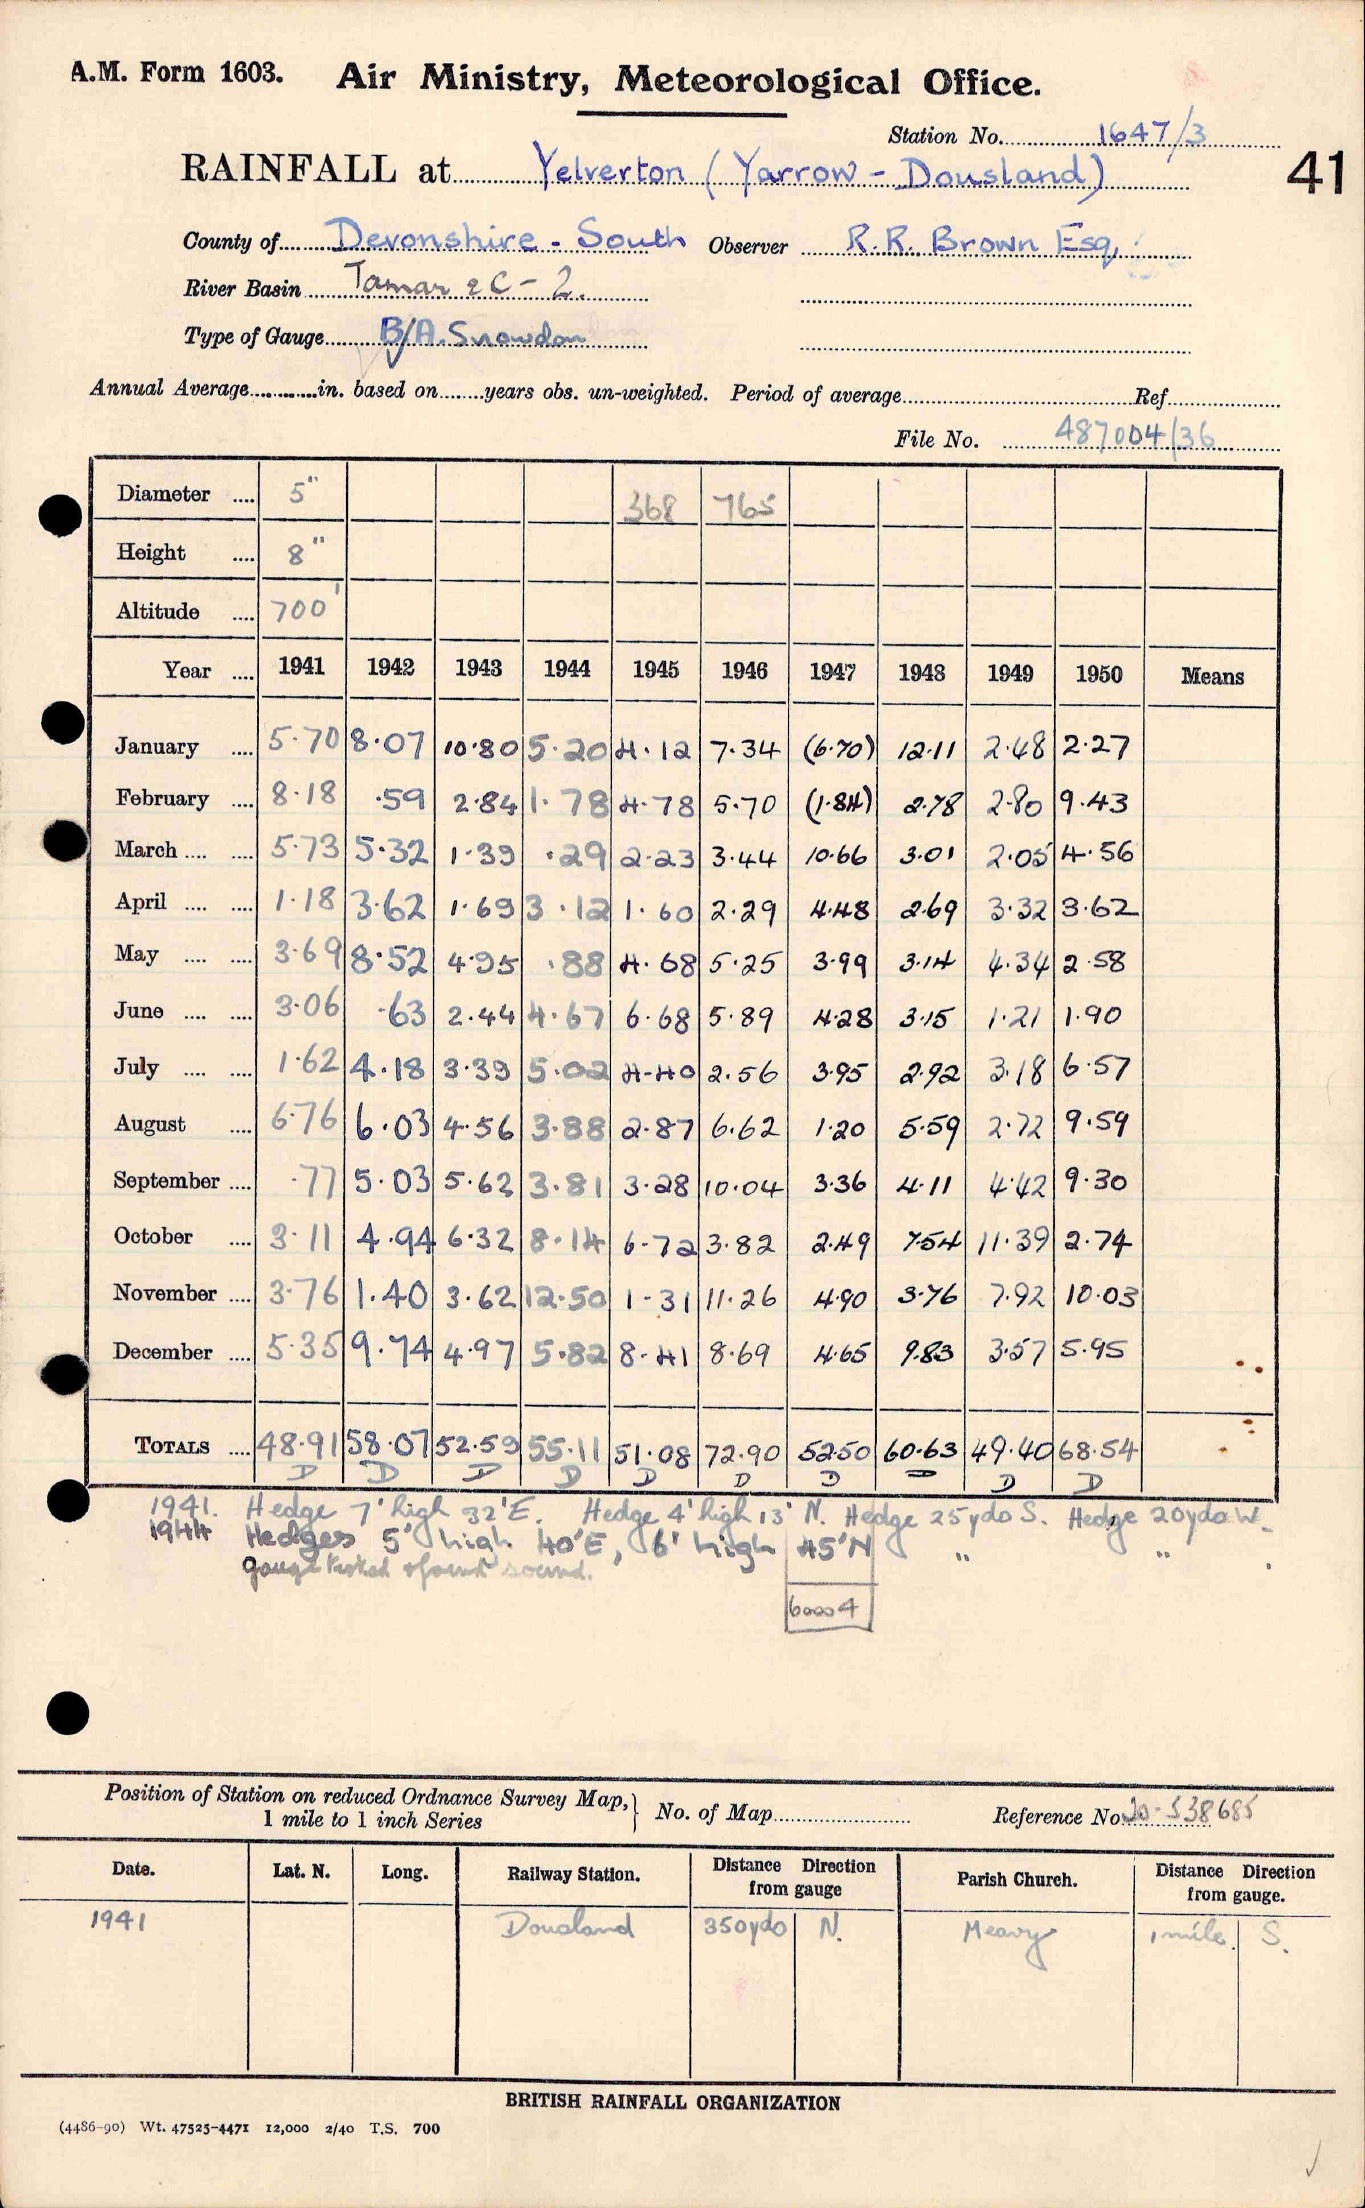 A.M. Form 1603. Air Ministry, Meteorological Office.
Station No. 1647/3
RAINFALL at Yelverton (Yarrow - Dousland)
41
County of Devonshire - South Observer R.R. Brown Esq.
River Basin Tamar 2C - 2.
Type of Gauge B/A. Snowdon
Annual Average in. based on years obs. un-weighted. Period of average Ref
File No. 487004/36
Diameter 5" 368 765
Height 8"
Altitude 700'
Year 1941 1942 1943 1944 1945 1946 1947 1948 1949 1950 Means
January 5.70 8.07 10.80 5.20 4.12 7.34 (6.70) 12.11 2.48 2.27
February 8.18 .59 2.84 1.78 4.78 5.70 (1.84) 2.78 2.80 9.43
March 5.73 5.32 1.39 .29 2.23 3.44 10.66 3.01 2.05 4.56
April 1.18 3.62 1.69 3.12 1.60 2.29 4.48 2.69 3.32 3.62
May 3.69 8.52 4.95 .88 4.68 5.25 3.99 3.14 4.34 2.58
June 3.06 .63 2.44 4.67 6.68 5.89 4.28 3.15 1.21 1.90
July 1.62 4.18 3.39 5.02 4.40 2.56 3.95 2.92 3.18 6.57
August 6.76 6.03 4.56 3.88 2.87 6.62 1.20 5.59 2.72 9.59
September .77 5.03 5.62 3.81 3.28 10.04 3.36 4.11 4.42 9.30
October 3.11 4.94 6.32 8.14 6.72 3.82 2.49 7.54 11.39 2.74
November 3.76 1.40 3.62 12.50 1.31 11.26 4.90 3.76 7.92 10.03
December 5.35 9.74 4.97 5.82 8.41 8.69 4.65 9.83 3.57 5.95
TOTALS 48.91 58.07 52.59 55.11 51.08 72.90 52.50 60.63 49.40 68.54
D D D D D D D D D D
1941. Hedge 7' high 32' E. Hedge 4' high 13' N. Hedge 25 yds S. Hedge 20 yds W.
1944 Hedges 5' high 40' E, 6' high 45' N " "
gauge tested & found sound.
60004
Position of Station on reduced Ordnance Survey Map, 1 mile to 1 inch Series } No. of Map Reference No. 20-538685
Date. Lat. N. Long. Railway Station. Distance Direction from gauge Parish Church. Distance Direction from gauge.
1941 Dousland 350 yds N. Meavy 1 mile. S.
BRITISH RAINFALL ORGANIZATION
(4486-90) Wt. 47525-4471 12,000 2/40 T.S. 700